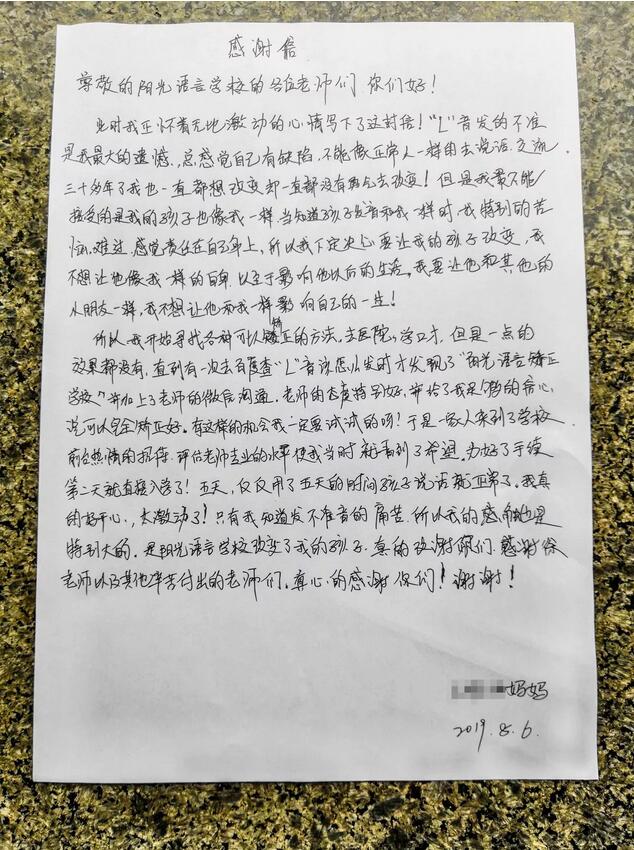 感谢信
尊敬的阳光语言学校的各位老师们 你们好！
此时我正怀着无比激动的心情写下了这封信！“L”音发的不准
是我最大的遗憾，总感觉自己有缺陷，不能像正常人一样的去说话、交流，
三十多年了我也一直都想改变却一直都没有勇气去改变！但是我最不能
接受的是我的孩子也像我一样，当知道孩子发音和我一样时，我特别的苦
恼、难过，感觉责任在自己身上，所以我下定决心要让我的孩子改变，我
不想让他像我一样的自卑，以至于影响他以后的生活，我要让他和其他的
小朋友一样，我不想让他和我一样影响自己的一生！
所以我开始寻找各种可以矫正的方法，去医院，学口才，但是一点的
效果都没有，直到有一次去百度查“L”音该怎么发时才发现了“阳光语言矫正
学校”并加上了老师的微信沟通，老师的态度特别好，并给了我足够的信心，
说可以矫正好。有这样的机会我一定要试试的呀！于是一家人来到了学校
前台热情的招待，评估老师专业的水平使我当时就看到了希望，办好了手续
第二天就直接入学了！五天，仅仅用了五天的时间孩子说话就正常了，我真
的好开心，太激动了！只有我知道发不准音的痛苦，所以我的感触也是
特别大的，是阳光语言学校改变了我的孩子，真的致谢你们，感谢徐
老师以及其他辛苦付出的老师们，真心的感谢你们！谢谢！
妈妈
2019.8.6